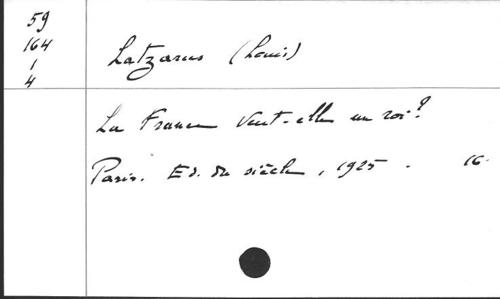 59
164
1
4
Latzarus (Louis)
La France veut-elle un roi?
Paris. Ed. du siècle, 1925. 16.